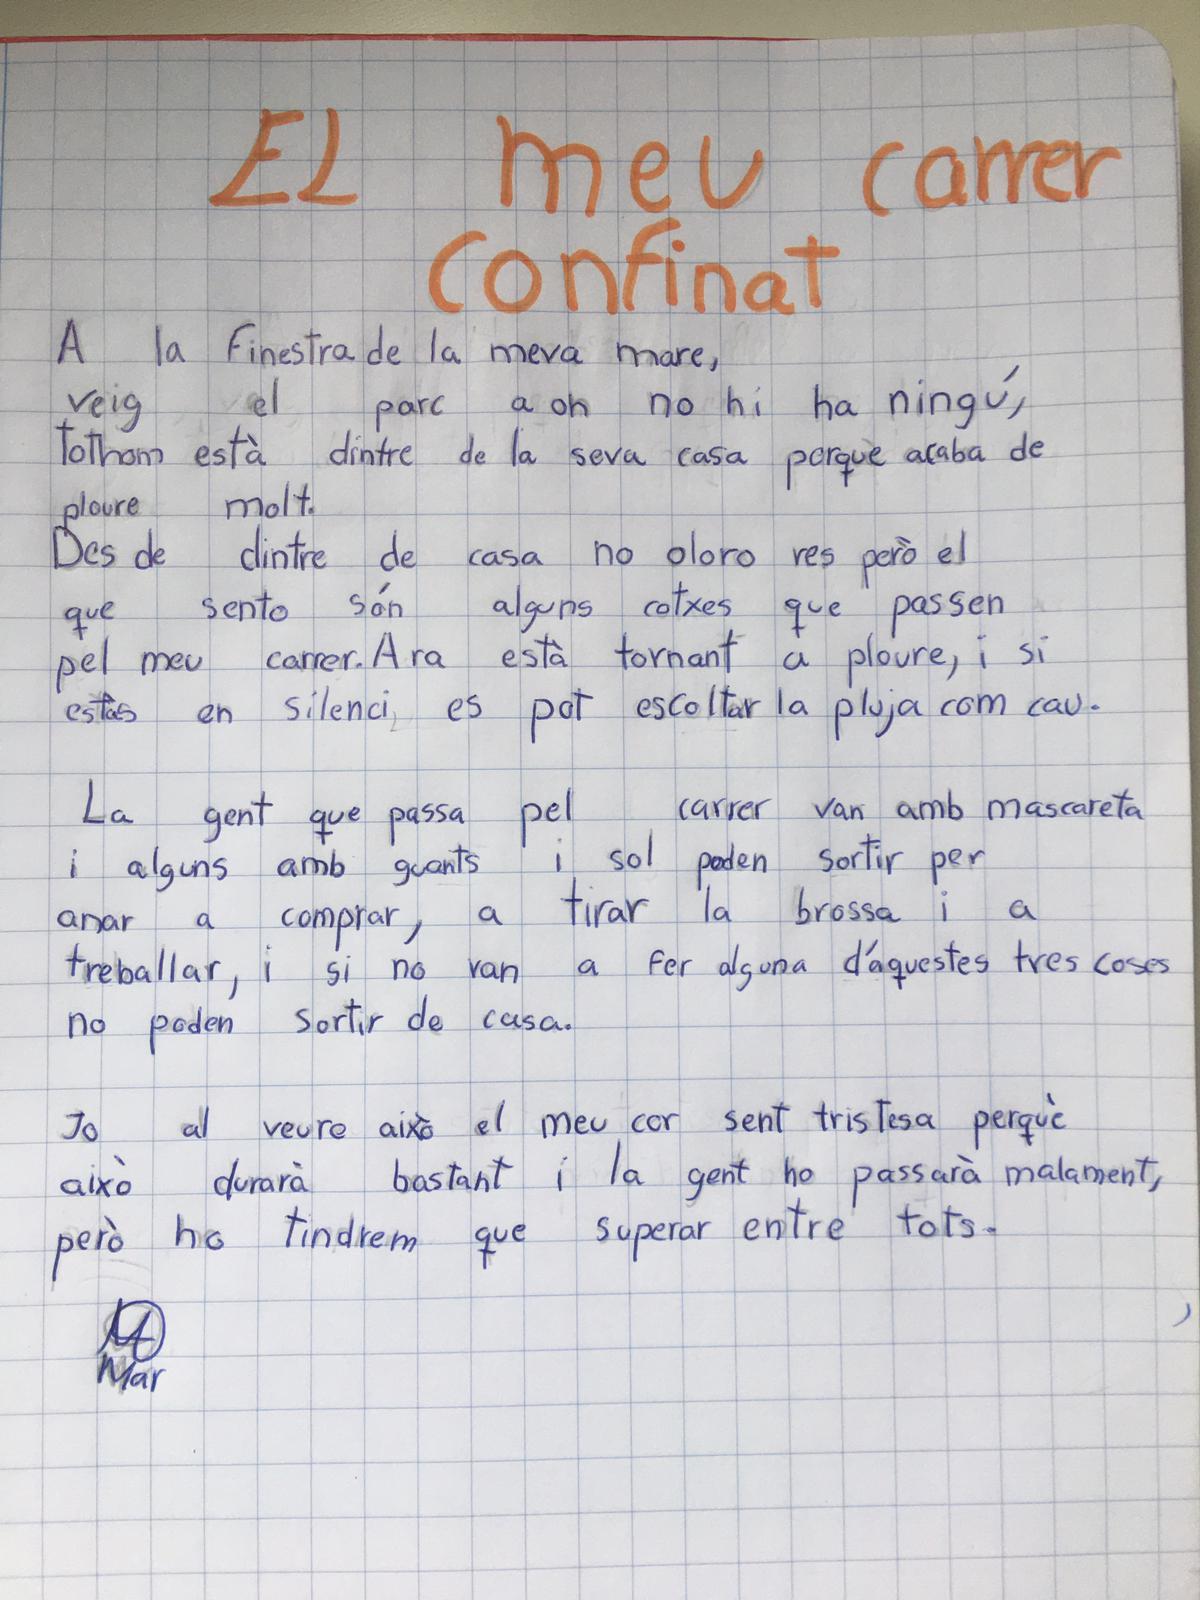 El meu carrer
confinat
A la finestra de la meva mare,
veig el parc a on no hi ha ningú,
tothom està dintre de la seva casa perquè acaba de
ploure molt.
Des de dintre de casa no oloro res però el
que sento són alguns cotxes que passen
pel meu carrer. Ara està tornant a ploure, i si
estàs en silenci, es pot escoltar la pluja com cau.
La gent que passa pel carrer van amb mascareta
i alguns amb guants i sol poden sortir per
anar a comprar, a tirar la brossa i a
treballar, i si no van a fer alguna d'aquestes tres coses
no poden sortir de casa.
Jo al veure això el meu cor sent tristesa perquè
això durarà bastant i la gent ho passarà malament,
però ho tindrem que superar entre tots.
Mar